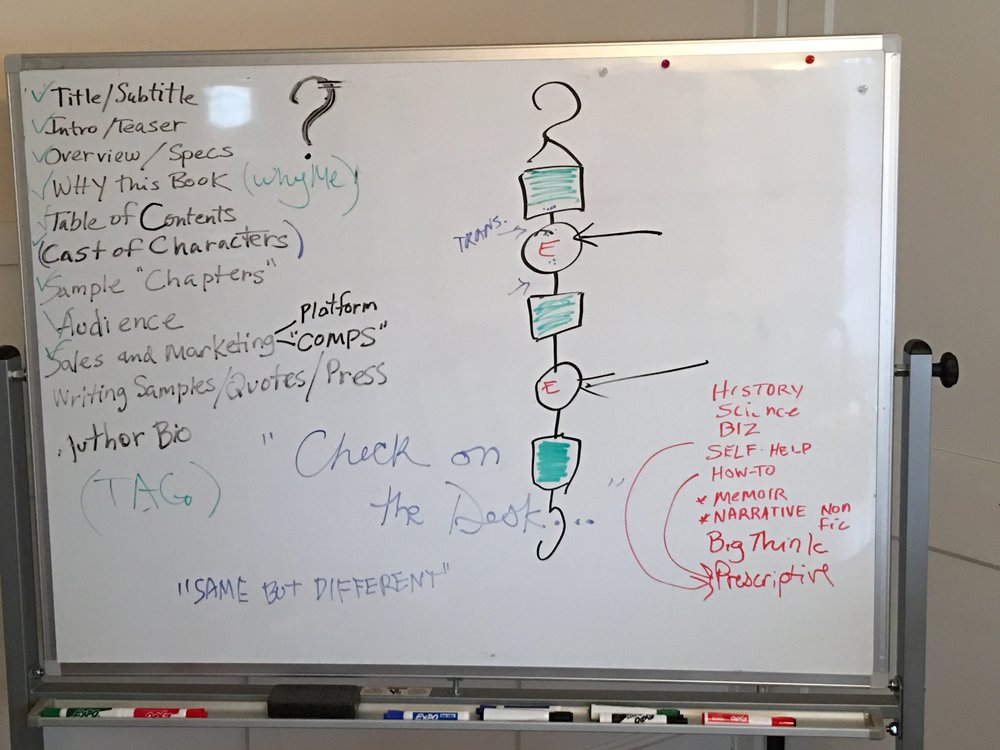 Title/Subtitle
Intro/Teaser
Overview/Specs
WHY this Book (Why Me)
Table of Contents
(Cast of Characters)
Sample "Chapters"
Audience
Sales and Marketing
Platform
"COMPS"
Writing Samples/Quotes/Press
Author Bio
(TAG)
?
"Check on
the Desk...."
"SAME BUT DIFFERENT"
TRANS.
E
E
HISTORY
Science
BIZ
SELF-HELP
HOW-TO
* MEMOIR
* NARRATIVE Non
Fic
Big Think
Prescriptive
EXPO
EXPO